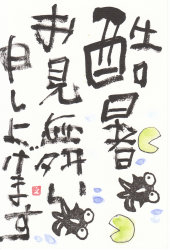 酷暑
お見舞い
申し上げます